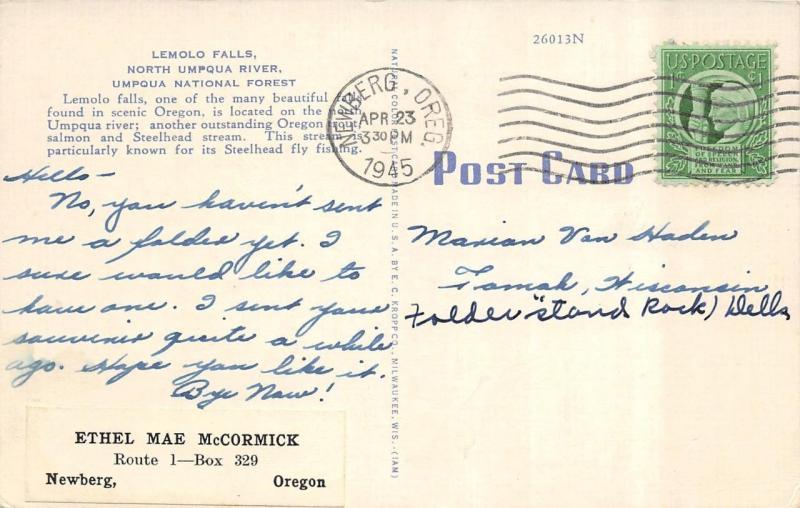 26013N
LEMOLO FALLS,
NORTH UMPQUA RIVER,
UMPQUA NATIONAL FOREST
Lemolo falls, one of the many beautiful
found in scenic Oregon, is located on the
Umpqua river; another outstanding Oregon trout,
salmon and Steelhead stream. This stream is
particularly known for its Steelhead fly fishing.
NEWBERG, OREG.
APR 23
3 30 PM
1945
U.S. POSTAGE
1¢ ¢1
FREEDOM
OF SPEECH
AND RELIGION,
FROM WANT
AND FEAR
POST CARD
Hello-
No, you haven't sent
me a folder yet. I
sure would like to
have one. I sent your
souvenir quite a while
ago. Hope you like it.
Bye Now!
NATURAL COLOR POST CARD MADE IN U. S. A. BY E. C. KROPP CO., MILWAUKEE, WIS.-(IAM)
Marian Van Haden
Tomah, Wisconsin
Folder "stand Rock) Dells
ETHEL MAE McCORMICK
Route 1—Box 329
Newberg, Oregon